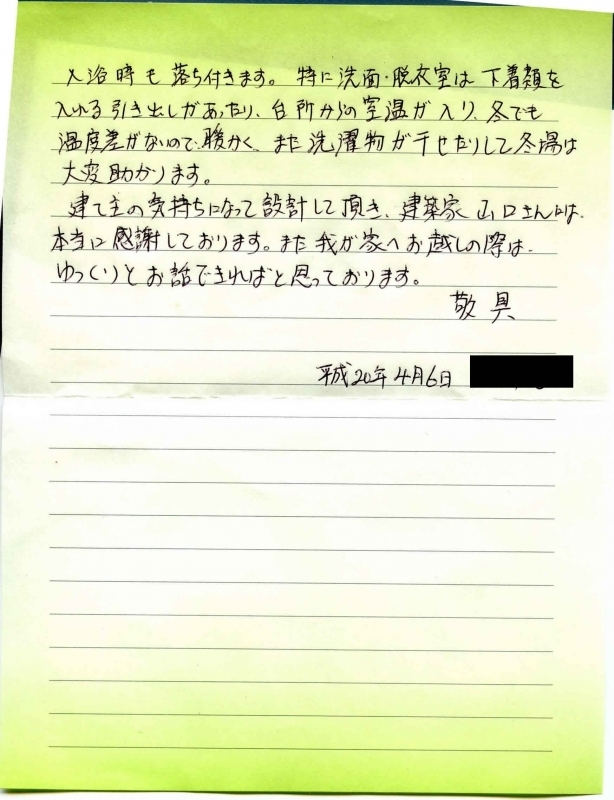 入浴時も落ち付きます。特に洗面・脱衣室は下着類を
入れる引き出しがあったり、台所からの室温が入り、冬でも
温度差がないので、暖かく、また洗濯物が干せたりして冬場は
大変助かります。
建て主の気持ちになって設計して頂き、建築家山口さんには、
本当に感謝しております。また我が家へお越しの際は、
ゆっくりとお話できればと思っております。
敬具
平成20年4月6日